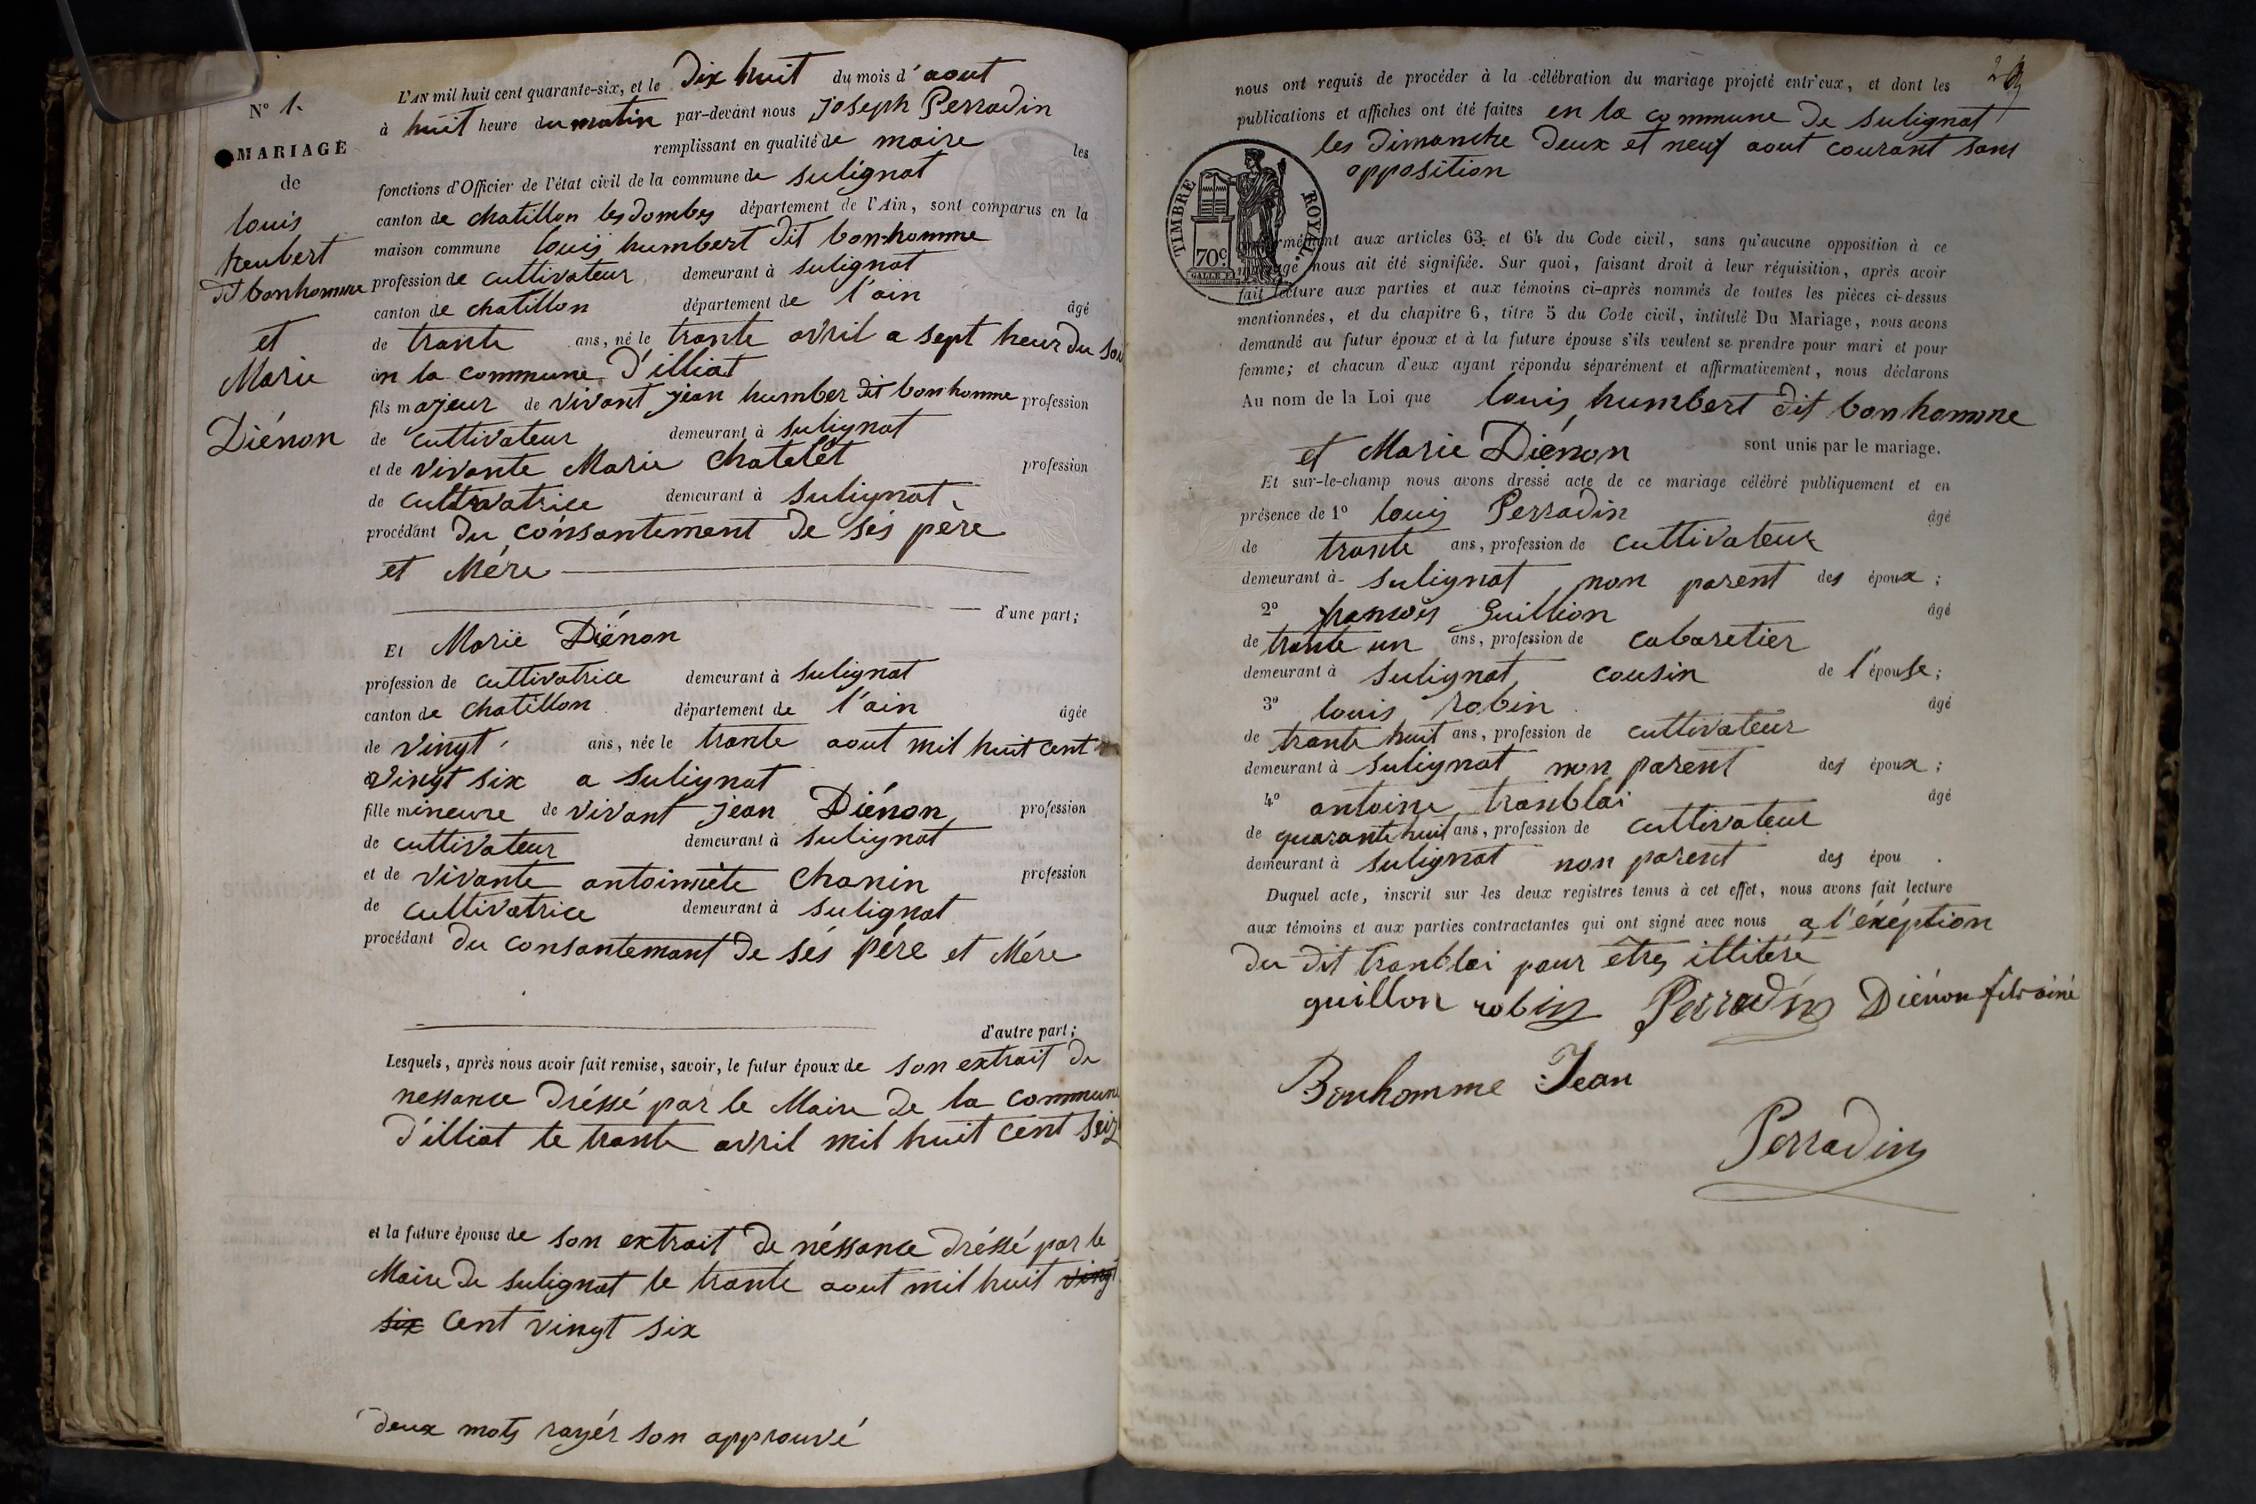 N° 1.
MARIAGE
de
louis
heubert
dit bonhomme
et
Marie
Diénon
L'AN mil huit cent quarante-six, et le Dix huit du mois d'aout
à huit heure du matin par-devant nous joseph Perradin
remplissant en qualité de maire les
fonctions d'Officier de l'état civil de la commune de sulignat
canton de chatillon les dombes département de l'Ain, sont comparus en la
maison commune louis humbert dit bonhomme
profession de cultivateur demeurant à sulignat
canton de chatillon département de l'ain âgé
de trante ans, né le trante avril a sept heur du soi
en la commune d'illiat
fils majeur de vivant jean humber dit bonhomme profession
de cultivateur demeurant à sulignat
et de vivante Marie chatelêt profession
de cultivatrice demeurant à sulignat
procédant du consantement de sés père
et Mére
d'une part;
Et Marie Diénon
profession de cultivatrice demeurant à sulignat
canton de chatillon département de l'ain âgée
de vingt ans, née le trante aout mil huit cent
vingt six a sulignat
fille mineure de vivant jean Diénon profession
de cultivateur demeurant à sulignat
et de vivante antoinnète chanin profession
de cultivatrice demeurant à sulignat
procédant du consantemant de sés pére et Mére
d'autre part;
Lesquels, après nous avoir fait remise, savoir, le futur époux de son extrait de
nessance dréssé par le Maire de la commune
d'illiat le trante avril mil huit cent seiz
et la future épouse de son extrait de néssance dréssé par le
Maire de sulignat le trante aout mil huit vingt
six cent vingt six
deux mots rayér son approuvé
nous ont requis de procéder à la célébration du mariage projeté entr'eux, et dont les
publications et affiches ont été faites en la commune de sulignat
les dimanche deux et neuf aout courant sans
opposition
TIMBRE ROYAL.
70c
conformément aux articles 63 et 64 du Code civil, sans qu'aucune opposition à ce
mariage nous ait été signifiée. Sur quoi, faisant droit à leur réquisition, après avoir
fait lecture aux parties et aux témoins ci-après nommés de toutes les pièces ci-dessus
mentionnées, et du chapitre 6, titre 5 du Code civil, intitulé Du Mariage, nous avons
demandé au futur époux et à la future épouse s'ils veulent se prendre pour mari et pour
femme; et chacun d'eux ayant répondu séparément et affirmativement, nous déclarons
Au nom de la Loi que louis humbert dit bonhomme
et Marie Diénon sont unis par le mariage.
Et sur-le-champ nous avons dressé acte de ce mariage célébré publiquement et en
présence de 1° louis Perradin âgé
de trante ans, profession de cultivateur
demeurant à sulignat non parent des époux;
2° francois guillion âgé
de trante un ans, profession de cabaretier
demeurant à sulignat cousin de l'épouse;
3° louis robin âgé
de trante huit ans, profession de cultivateur
demeurant à sulignat non parent des époux;
4° antoine tranblai âgé
de quarante huit ans, profession de cultivateur
demeurant à sulignat non parent des épou .
Duquel acte, inscrit sur les deux registres tenus à cet effet, nous avons fait lecture
aux témoins et aux parties contractantes qui ont signé avec nous a l'éxéption
du dit tranblai pour êtres illitéré
guillon robin Perradin Diénon fils ainé
Bonhomme Jean
Perradin